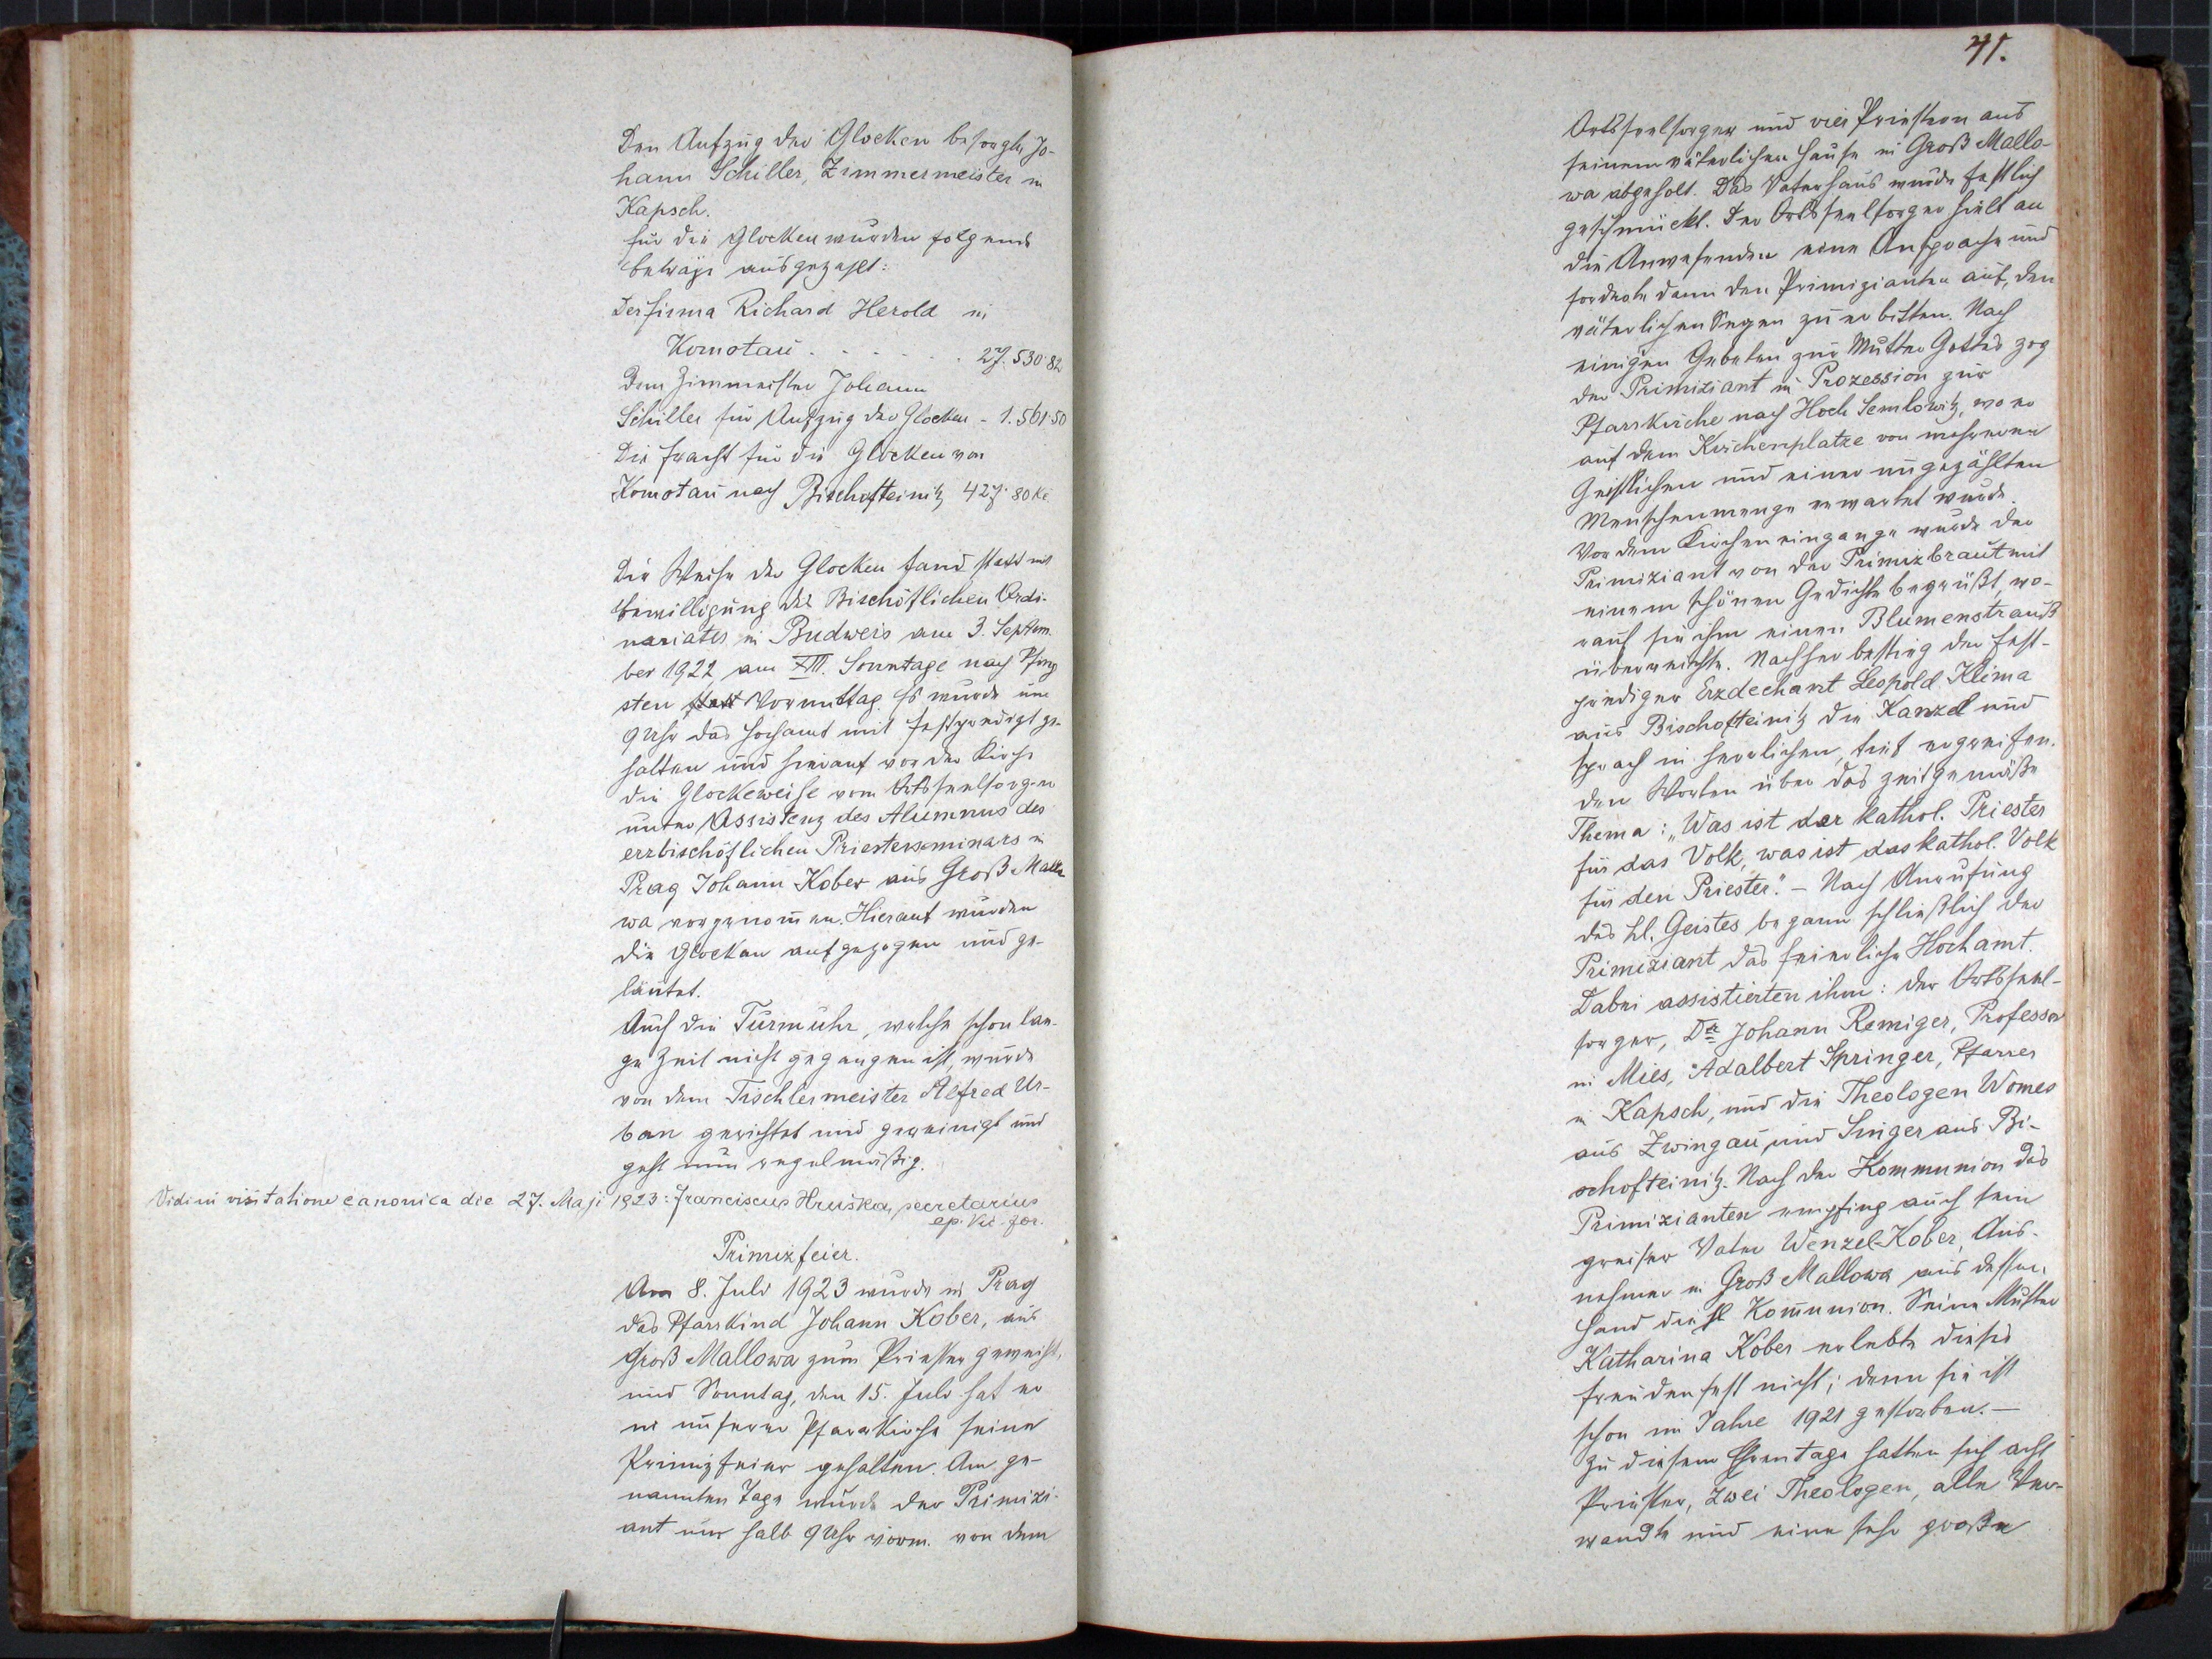 Den Aufzug der Glocken besorgte Jo-
hann Schiller, Zimmermeister in
Kapsch.
Für die Glocken wurden folgende
Beträge ausgezahlt:
Der Firma Richard Herold in
Komotau . . . . . . . 27.530·82
Dem Zimmermeister Johann
Schiller für Aufzug der Glocken - 1.561·50
Die Fracht für die Glocken von
Komotau nach Bischofteinitz 427·80 Kč
Die Weihe der Glocken fand statt mit
Bewilligung des Bischöflichen Ordi-
nariates in Budweis am 3. Septem-
ber 1922, am XIII. Sonntage nach Pfing
sten Vormittag. Es wurde um
9 Uhr das Hochamt mit Festpredigt ge-
halten und hierauf vor der Kirche
die Glockeweihe vom Ortsseelsorger
unter Assistenz des Alumnus des
erzbischöflichen Priesterseminars in
Prag Johann Kober aus Groß Mallo
wa vorgenom̄en. Hierauf wurden
die Glocken aufgezogen und ge-
läutet.
Auch die Turmuhr, welche schon lan-
ge Zeit nicht gegangen ist, wurde
von dem Tischlermeister Alfred Ur-
ban gerichtet und gereinigt und
geht nun regelmäßig.
Vidi in visitatione canonica die 27. Maji 1923: Franciscus Hruška, secretarius
ep. vic. for.
Primizfeier.
Am 8. Juli 1923 wurde in Prag
das Pfarrkind Johann Kober, aus
Groß Mallowa zum Priester geweiht,
und Sonntag, den 15. Juli hat er
in unserer Pfarrkirche seine
Primizfeier gehalten. Am ge-
nannten Tage wurde der Primizi-
ant um halb 9 Uhr vorm. von dem
41.
Ortsseelsorger und vier Priestern aus
seinem väterlichen Hause in Groß Mallo-
wa abgeholt. Das Vaterhaus wurde festlich
geschmückt. Der Ortsseelsorger hielt an
die Anwesenden eine Ansprache und
forderte dann den Primizianten auf, den
väterlichen Segen zu erbitten. Nach
einigen Gebeten zur Mutter Gottes zog
der Primiziant in Prozession zur
Pfarrkirche nach Hoch Semlowitz, wo er
auf dem Kirchenplatze von mehreren
Geistlichen und einer ungezählten
Menschenmenge erwartet wurde.
Vor dem Kircheneingange wurde der
Primiziant von der Primizbraut mit
einem schönen Gedichte begrüßt, wo-
rauf sie ihm einen Blumenstrauß
überreichte. Nachher bestieg der Fest-
prediger Erzdechant Leopold Klima
aus Bischofteinitz die Kanzel und
sprach in herrlichen, tief ergreifen-
den Worten über das zeitgemäße
Thema: „Was ist der kathol. Priester
für das Volk, was ist das kathol. Volk
für den Priester." – Nach Anrufung
des hl. Geistes begann schließlich der
Primiziant das feierliche Hochamt.
Dabei assistierten ihm: der Ortsseel-
sorger, Dr. Johann Remiger, Professor
in Mies, Adalbert Springer, Pfarrer
in Kapsch, und die Theologen Womes
aus Zwingau, und Singer aus Bi-
schofteinitz. Nach der Kommunion des
Primizianten empfing auch sein
greiser Vater Wenzel Kober, Aus-
nehmer in Groß Mallowa aus dessen
Hand die hl. Kom̄union. Seine Mutter
Katharina Kober erlebte dieses
Freudenfest nicht; denn sie ist
schon im Jahre 1921 gestorben. –
Zu diesem Ehrentage hatten sich acht
Priester, zwei Theologen, alle Ver-
wandte und eine sehr große